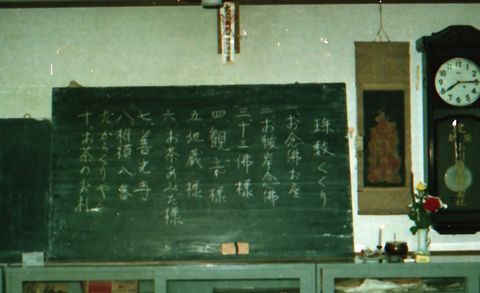 珠数くり
一お念佛お座
二お彼岸念佛
三十三佛様
四観音様
五地蔵様
六お茶あみだ様
七善光寺
八相模八番
十お茶のお礼